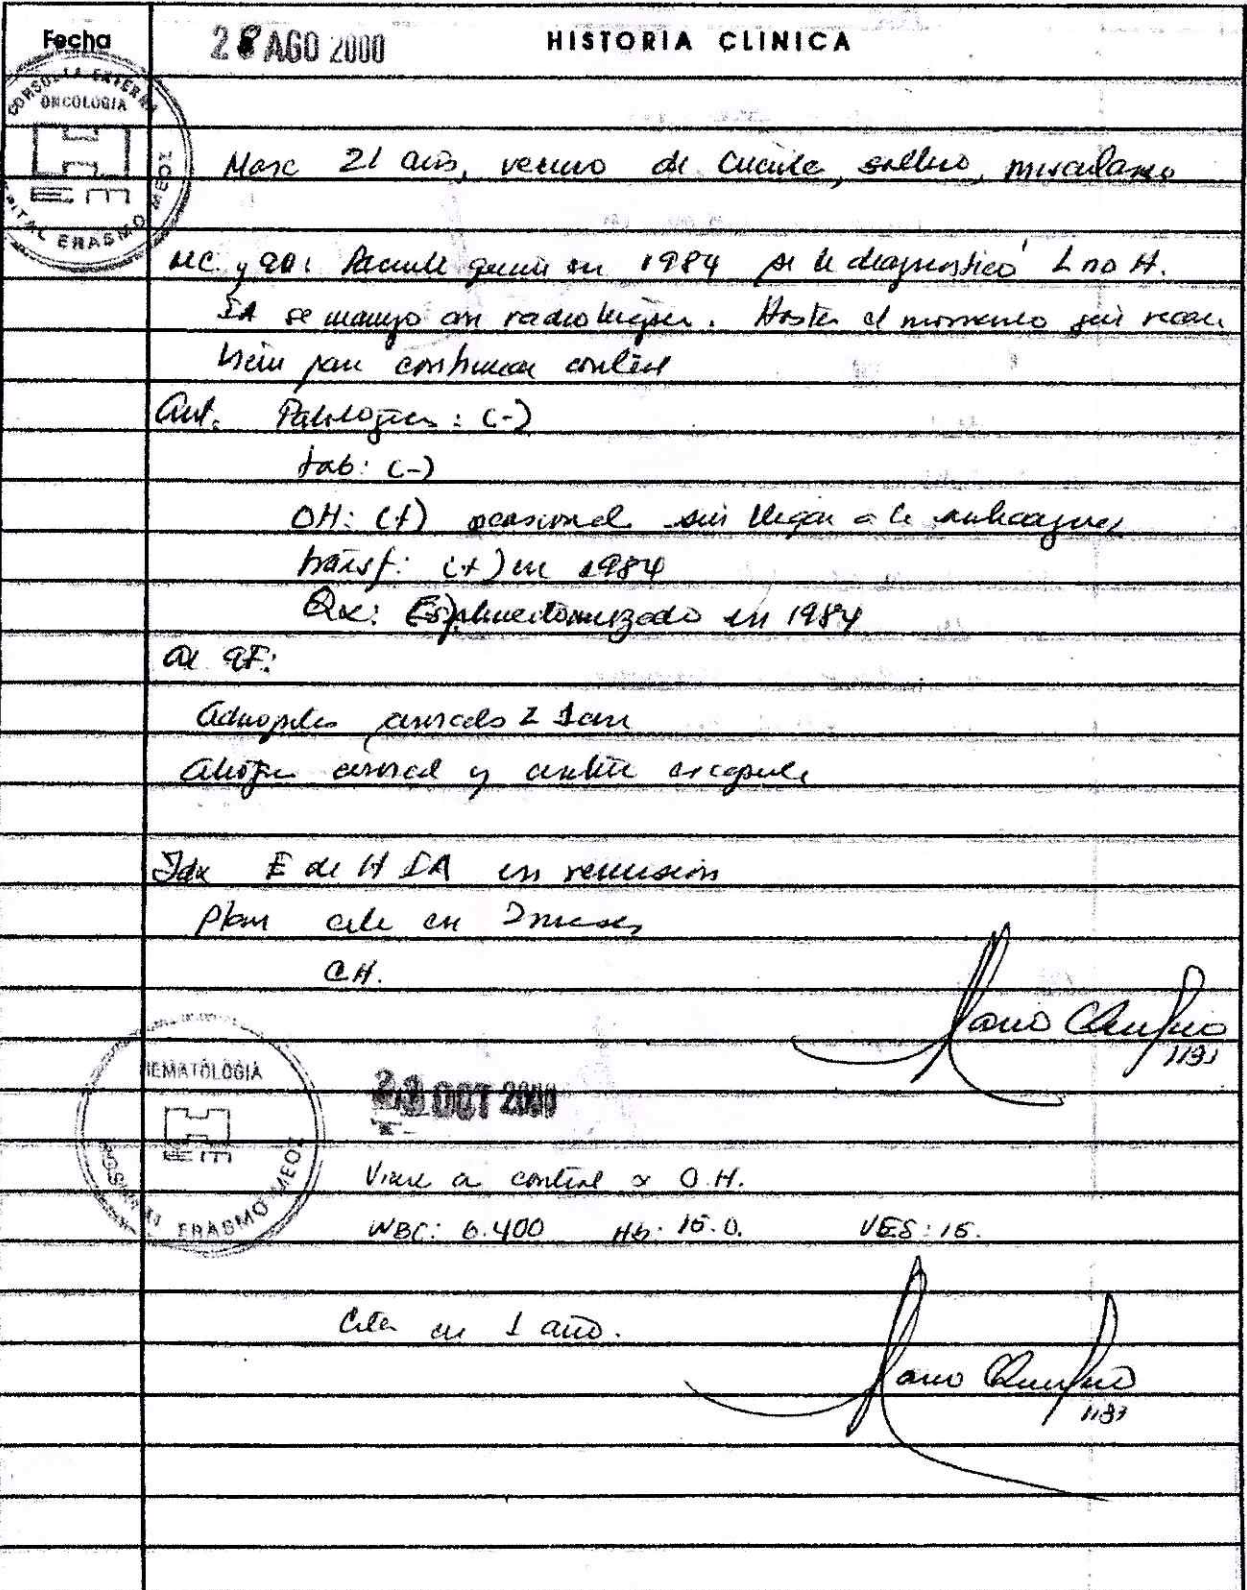 Fecha
28 AGO 2000
HISTORIA CLINICA
CONSULTA EXTERNA
ONCOLOGIA
HEM
HOSPITAL ERASMO MEOZ
Masc 21 años, vecino de Cúcuta, soltero,
MC y EA: Paciente quien en 1984 se le diagnosticó L no H.
IA se manejo con radioterapia. Hasta el momento sin
viene para continuar control
Ant. Patologicos: (-)
tab: (-)
OH: (+) ocasional sin llegar a la embriaguez
transf: (+) en 1984
Qx: Esplenectomizado en 1984
Al EF:
cervicales 2 1cm
cervical y
Idx E de H IA en remisión
Plan cita en 2 meses
C.H.
1191
HEMATOLOGIA
HEM
HOSPITAL ERASMO MEOZ
OCT 2000
Viene a control x O.H.
WBC: 6.400 Hb: 15.0. VES: 15.
Cita en 1 año.